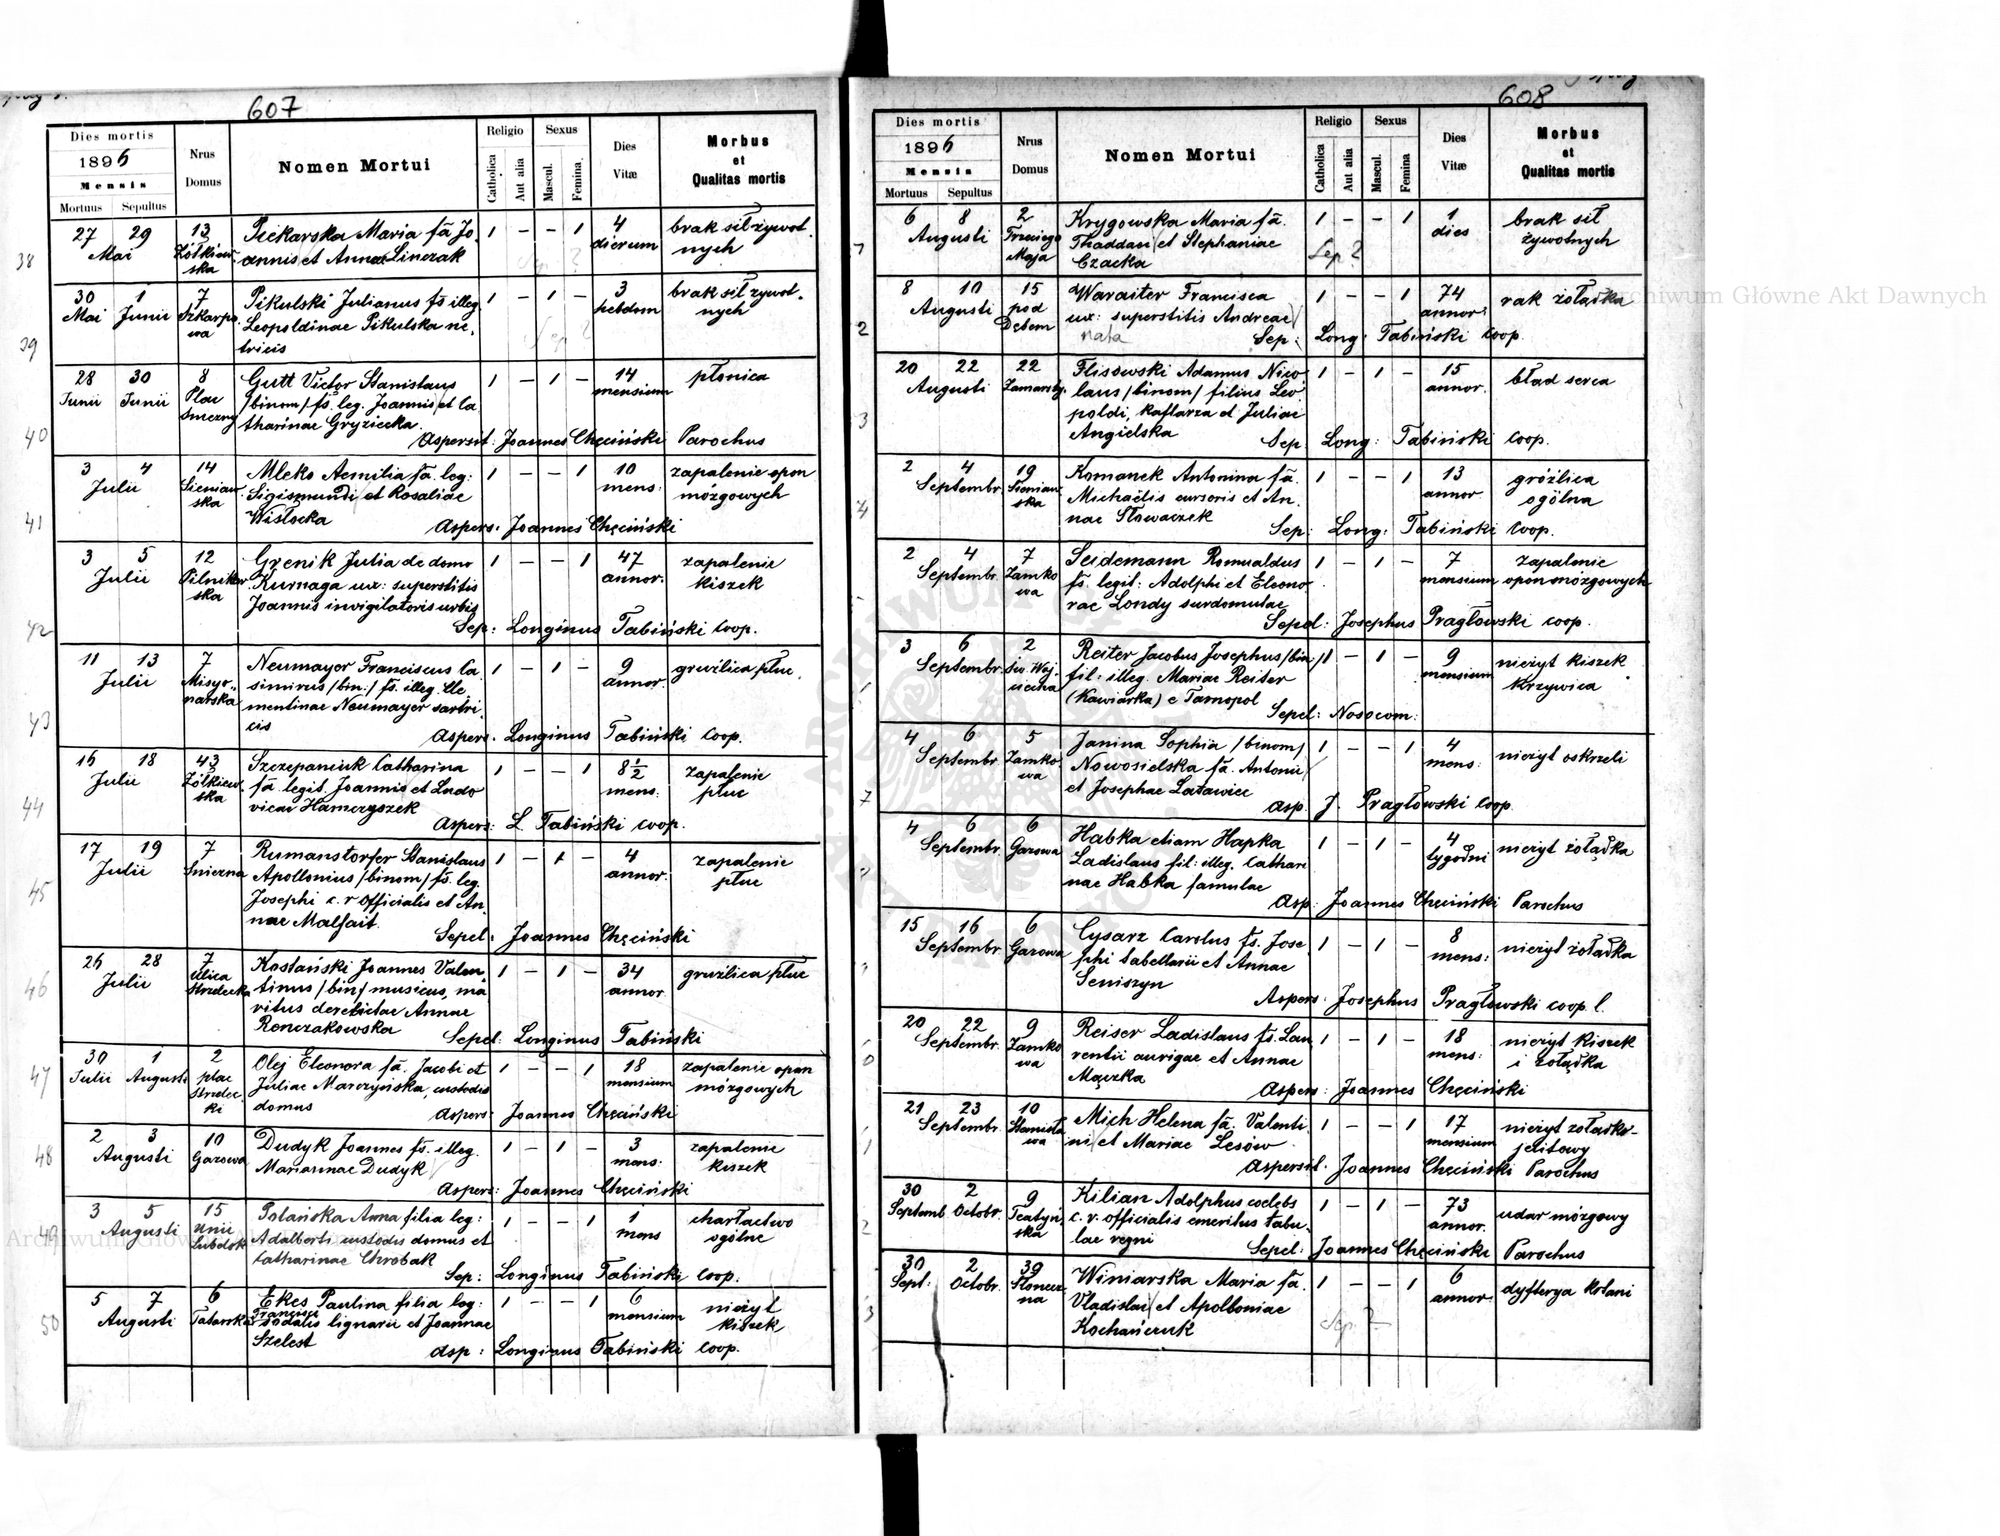 607
Dies mortis
1896
Mensis
Mortuus Sepultus
Nrus
Domus
Nomen Mortui
Religio
Catholica
Aut alia
Sexus
Mascul.
Femina.
Dies
Vitæ
Morbus
et
Qualitas mortis
38
27 29 13 Piekarska Maria fa Jo 1 - - 1 4 brak sił żywot
Mai Żółkiew annis et Anna Linczak dierum nych
ska Sep ?
39
30 1 7 Pikulski Julianus fs illeg. 1 - 1 - 3 brak sił żywot
Mai Junii Szkarpo Leopoldinae Pikulska ne hebdom nych
wa tricis Sep ?
40
28 30 8 Gutt Victor Stanislaus 1 - 1 - 14 płonica
Junii Junii Plac /binom/ fs. leg. Joannis et Ca mensium
tharinae Gryziecka
Aspersit: Joannes Chęciński Parochus
41
3 4 14 Mleko Aemilia fa leg: 1 - - 1 10 zapalenie opon
Julii Sieniaw Sigismundi et Rosaliae mens: mózgowych
ska Wisłocka
Aspers: Joannes Chęciński
42
3 5 12 Grenik Julia de domo 1 - - 1 47 zapalenie
Julii Pilnikar Kurnaga ux: superstitis annor. kiszek
ska Joannis invigilatoris urbis
Sep: Longinus Tabiński coop.
43
11 13 7 Neumayer Franciscus Ca 1 - 1 - 9 gruźlica płuc
Julii Misyo simirus /bin:/ fs. illeg. Cle annor.
narska mentinae Neumayer sartri
cis
Aspers. Longinus Tabiński coop.
44
16 18 43 Szczepaniuk Catharina 1 - - 1 8 1/2 zapalenie
Julii Żółkiew fa legit. Joannis et Ludo mens. płuc
ska vicae Hamczyszek
Aspers: L. Tabiński coop.
45
17 19 7 Rumanstorfer Stanislaus 1 - 1 - 4 zapalenie
Julii Śnieżna Apollonius /binom/ fs. leg. annor. płuc
Josephi c. r officialis et An
nae Malfait.
Sepel: Joannes Chęciński
46
26 28 7 Kostański Joannes Valen 1 - 1 - 34 gruźlica płuc
Julii Ulica tinus /bin/ musicus, ma annor
Strzelecka ritus derelictae Annae
Renczakowska
Sepel: Longinus Tabiński
47
30 1 2 Olej Eleonora fa. Jacobi et 1 - - 1 18 zapalenie opon
Julii Augusti plac Juliae Marczyńska, custodis mensium mózgowych
Strzelec domus
ki Aspers: Joannes Chęciński
48
2 3 10 Dudyk Joannes fs. illeg. 1 - 1 - 3 zapalenie
Augusti Gazowa Mariannae Dudyk mens: kiszek
Aspers: Joannes Chęciński
49
3 5 15 Polańska Anna filia leg: 1 - - 1 1 charłactwo
Augusti Unii Adalberti custodis domus et mens ogólne
Lubelsk Catharinae Chrobak
Sep: Longinus Tabiński coop.
50
5 7 6 Ekes Paulina filia leg: 1 - - 1 6 nieżyt
Francisci
Augusti Tatarska sodalis lignarii et Joannae mensium kiszek
Szelest
Asp: Longinus Tabiński coop.
608
Dies mortis
1896
Mensis
Mortuus Sepultus
Nrus
Domus
Nomen Mortui
Religio
Catholica
Aut alia
Sexus
Mascul.
Femina
Dies
Vitæ
Morbus
et
Qualitas mortis
6 8 2 Krygowska Maria fa. 1 - - 1 1 brak sił
Augusti Trzeciego Thaddaei et Stephaniae dies żywotnych
Maja Czacka Sep ?
2
8 10 15 Waraiter Francisca 1 - - 1 74 rak żołądka
Augusti pod ux: superstitis Andreae annor.
Dębem nata Sep: Long: Tabiński coop.
3
20 22 22 Flisowski Adamus Nico 1 - 1 - 15 błąd serca
Augusti Zamarsty. laus /binom/ filius Leo annor.
poldi, kaflarza et Juliae
Angielska
Sep: Long: Tabiński coop.
4
2 4 19 Komanek Antonina fa. 1 - - 1 13 gróźlica
Septembr. Sieniaw Michaëlis cursoris et An annor ogólna
ska nae Słowaczek
Sep: Long: Tabiński coop.
2 4 7 Seidemann Romualdus 1 - 1 - 7 zapalenie
Septembr. Zamko fs. legit: Adolphi et Eleono mensium opon mózgowych
wa rae Londy surdomutae
Sepel: Josephus Pragłowski coop.
3 6 2 Reiter Jacobus Josephus /bin/ 1 - 1 - 9 nieżyt kiszek
Septembr. św. Woj fil: illeg. Mariae Reiter mensium krzywica
ciecha (Kawiarka) e Tarnopol
Sepel: Nosocom:
7
4 6 5 Janina Sophia /binom/ 1 - - 1 4 nieżyt oskrzeli
Septembr. Zamko Nowosielska fa. Antonii mens:
wa et Josephae Latawiec
Asp. J. Pragłowski coop.
4 6 6 Habka etiam Hapka 1 - 1 - 4 nieżyt żołądka
Septembr. Gazowa Ladislaus fil: illeg. Cathari tygodni
nae Habka famulae
Asp: Joannes Chęciński Parochus
15 16 6 Cysarz Carolus fs. Jose 1 - 1 - 8 nieżyt żołądka
Septembr. Gazowa phi tabellarii et Annae mens:
Seniszyn
Aspers: Josephus Pragłowski coop l.
0
20 22 9 Reiser Ladislaus fs. Lau 1 - 1 - 18 nieżyt kiszek
Septembr. Zamko rentii aurigae et Annae mens: i żołądka
wa Mączka
Aspers: Joannes Chęciński
1
21 23 10 Mich Helena fa. Valenti 1 - - 1 17 nieżyt żołądko-
Septembr. Stanisła ni et Mariae Lesów mensium jelitowy
wa Aspersit. Joannes Chęciński Parochus
2
30 2 9 Kilian Adolphus coelebs 1 - 1 - 73 udar mózgowy
Septemb Octobr. Teatyń c. r. officialis emeritus tabu annor.
ska lae regni
Sepel: Joannes Chęciński Parochus
3
30 2 39 Winiarska Maria fa. 1 - - 1 6 dyfterya krtani
Sept: Octobr. Słonecz Vladislai et Apolloniae annor.
na Kochańczuk Sep. ?
Archiwum Główne Akt Dawnych